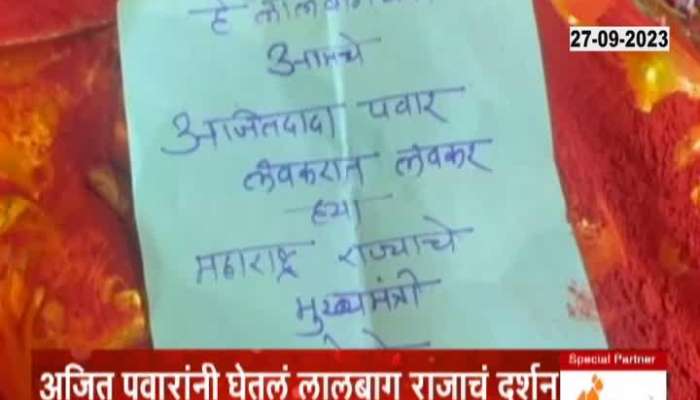 हे लालबाग
27-09-2023
आमचे
अजितदादा पवार
लवकरात लवकर
ह्या
महाराष्ट्र राज्याचे
मुख्यमंत्री
Special Partner
अजित पवारांनी घेतलं लालबाग राजाचं दर्शन